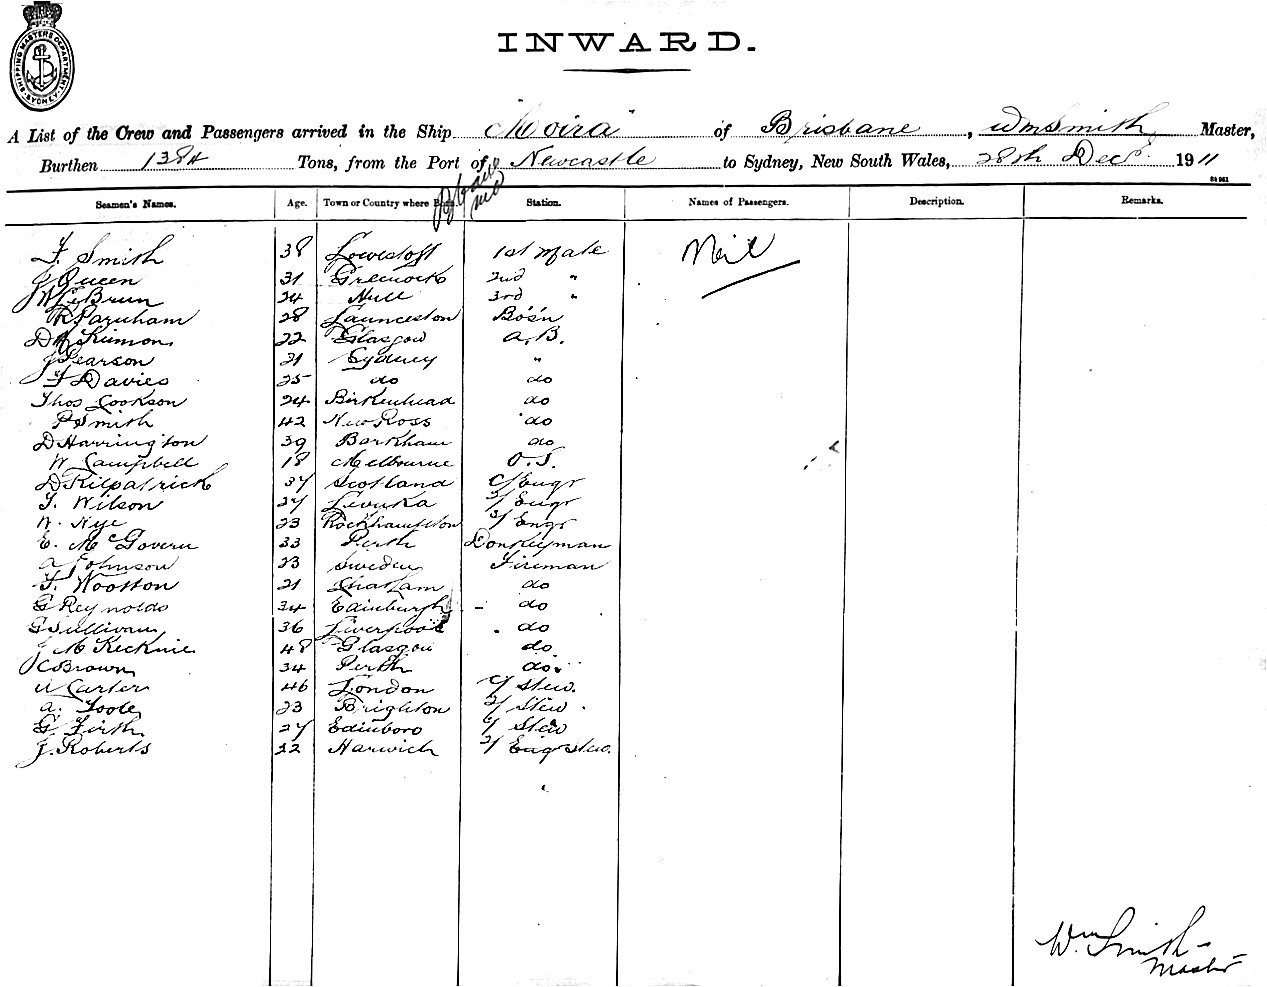 SHIPPING MASTERS DEPARTMENT SYDNEY
INWARD.
A List of the Crew and Passengers arrived in the Ship Moira of Brisbane, Wm Smith Master,
Burthen 1384 Tons, from the Port of Newcastle to Sydney, New South Wales, 28th Decr 1911
Seamen's Names. Age. Town or Country where Station. Names of Passengers. Description. Remarks.
F. Smith 38 Lowestoft 1st Mate Nil
J Queen 31 Greenock 2nd "
W Le Brun 24 Hull 3rd "
R Parnham 28 Launceston Bos'n
D 22 Glasgow A.B.
J Pearson 21 Sydney "
F Davies 25 do do
Thos Cookson 24 Birkenhead do
P Smith 42 New Ross do
D Harrington 39 Barkham do
W Campbell 18 Melbourne O.S.
D Kilpatrick 37 Scotland C/Engr
T. Wilson 27 Levuka 2/Engr
W. Nye 23 Rockhampton 3/Engr
E. McGovern 33 Perth Donkeyman
A Johnson 23 Sweden Fireman
F. Wootton 21 Chatham do
G Reynolds 34 Edinburgh do
G Sullivan 36 Liverpool do
J McKechnie 48 Glasgow do
J C Brown 34 Perth do
W Carter 46 London C/ Stew.
A. Toole 23 Brighton 2/ Stew.
G. Firth 27 Edinboro Stew
J. Roberts 22 Harwich Engr Stew.
Wm Smith
Master